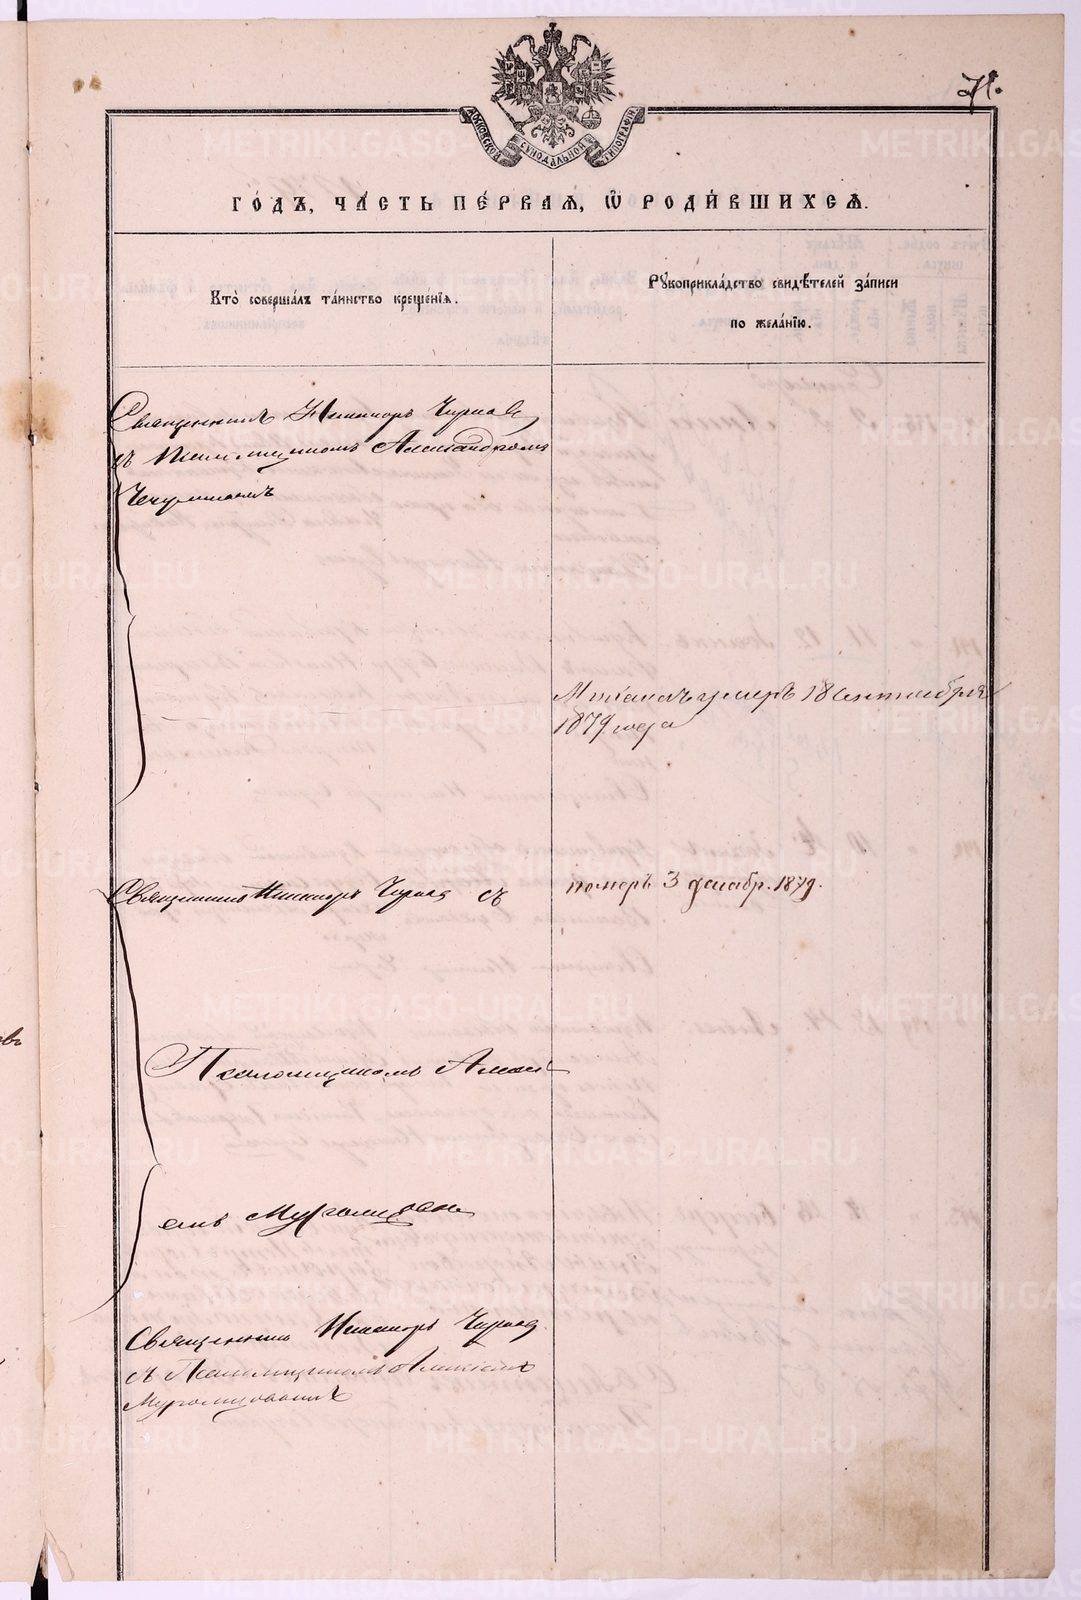 71.
МОСКОВСКОЙ СѴНОДАЛЬНОЙ ТИПОГРАФІИ
ГО́ДЪ, ЧА́СТЬ ПЕ́РВАЯ, Ѿ РОДИ́ВШИХСЯ.
Кто̀ соверша́лъ та́инство креще́нїя.
Рꙋкоприкла́дство свидѣ́телей за́писи
по жела́нїю.
Священникъ Никаноръ
съ Псаломщикомъ Александромъ
умеръ 18 Сентября
1879 года
Священникъ Никаноръ съ
померъ 3 декабр. 1879.
Псаломщикомъ Алексѣ
емъ Муромцовымъ
Священникъ Никаноръ
съ Псаломщикомъ Алексѣемъ
Муромцовымъ
METRIKI.GASO-URAL.RU